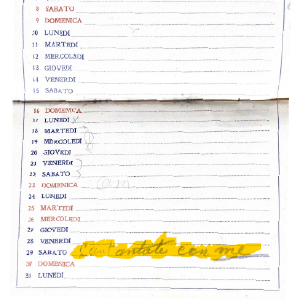 8 SABATO
9 DOMENICA
10 LUNEDI
11 MARTEDI
12 MERCOLEDI
13 GIOVEDI
14 VENERDI
15 SABATO
16 DOMENICA
17 LUNEDI
18 MARTEDI
19 MERCOLEDI
20 GIOVEDI
21 VENERDI
22 SABATO
23 DOMENICA
24 LUNEDI
25 MARTEDI
26 MERCOLEDI
27 GIOVEDI
28 VENERDI
29 SABATO cantate con me
30 DOMENICA
31 LUNEDI